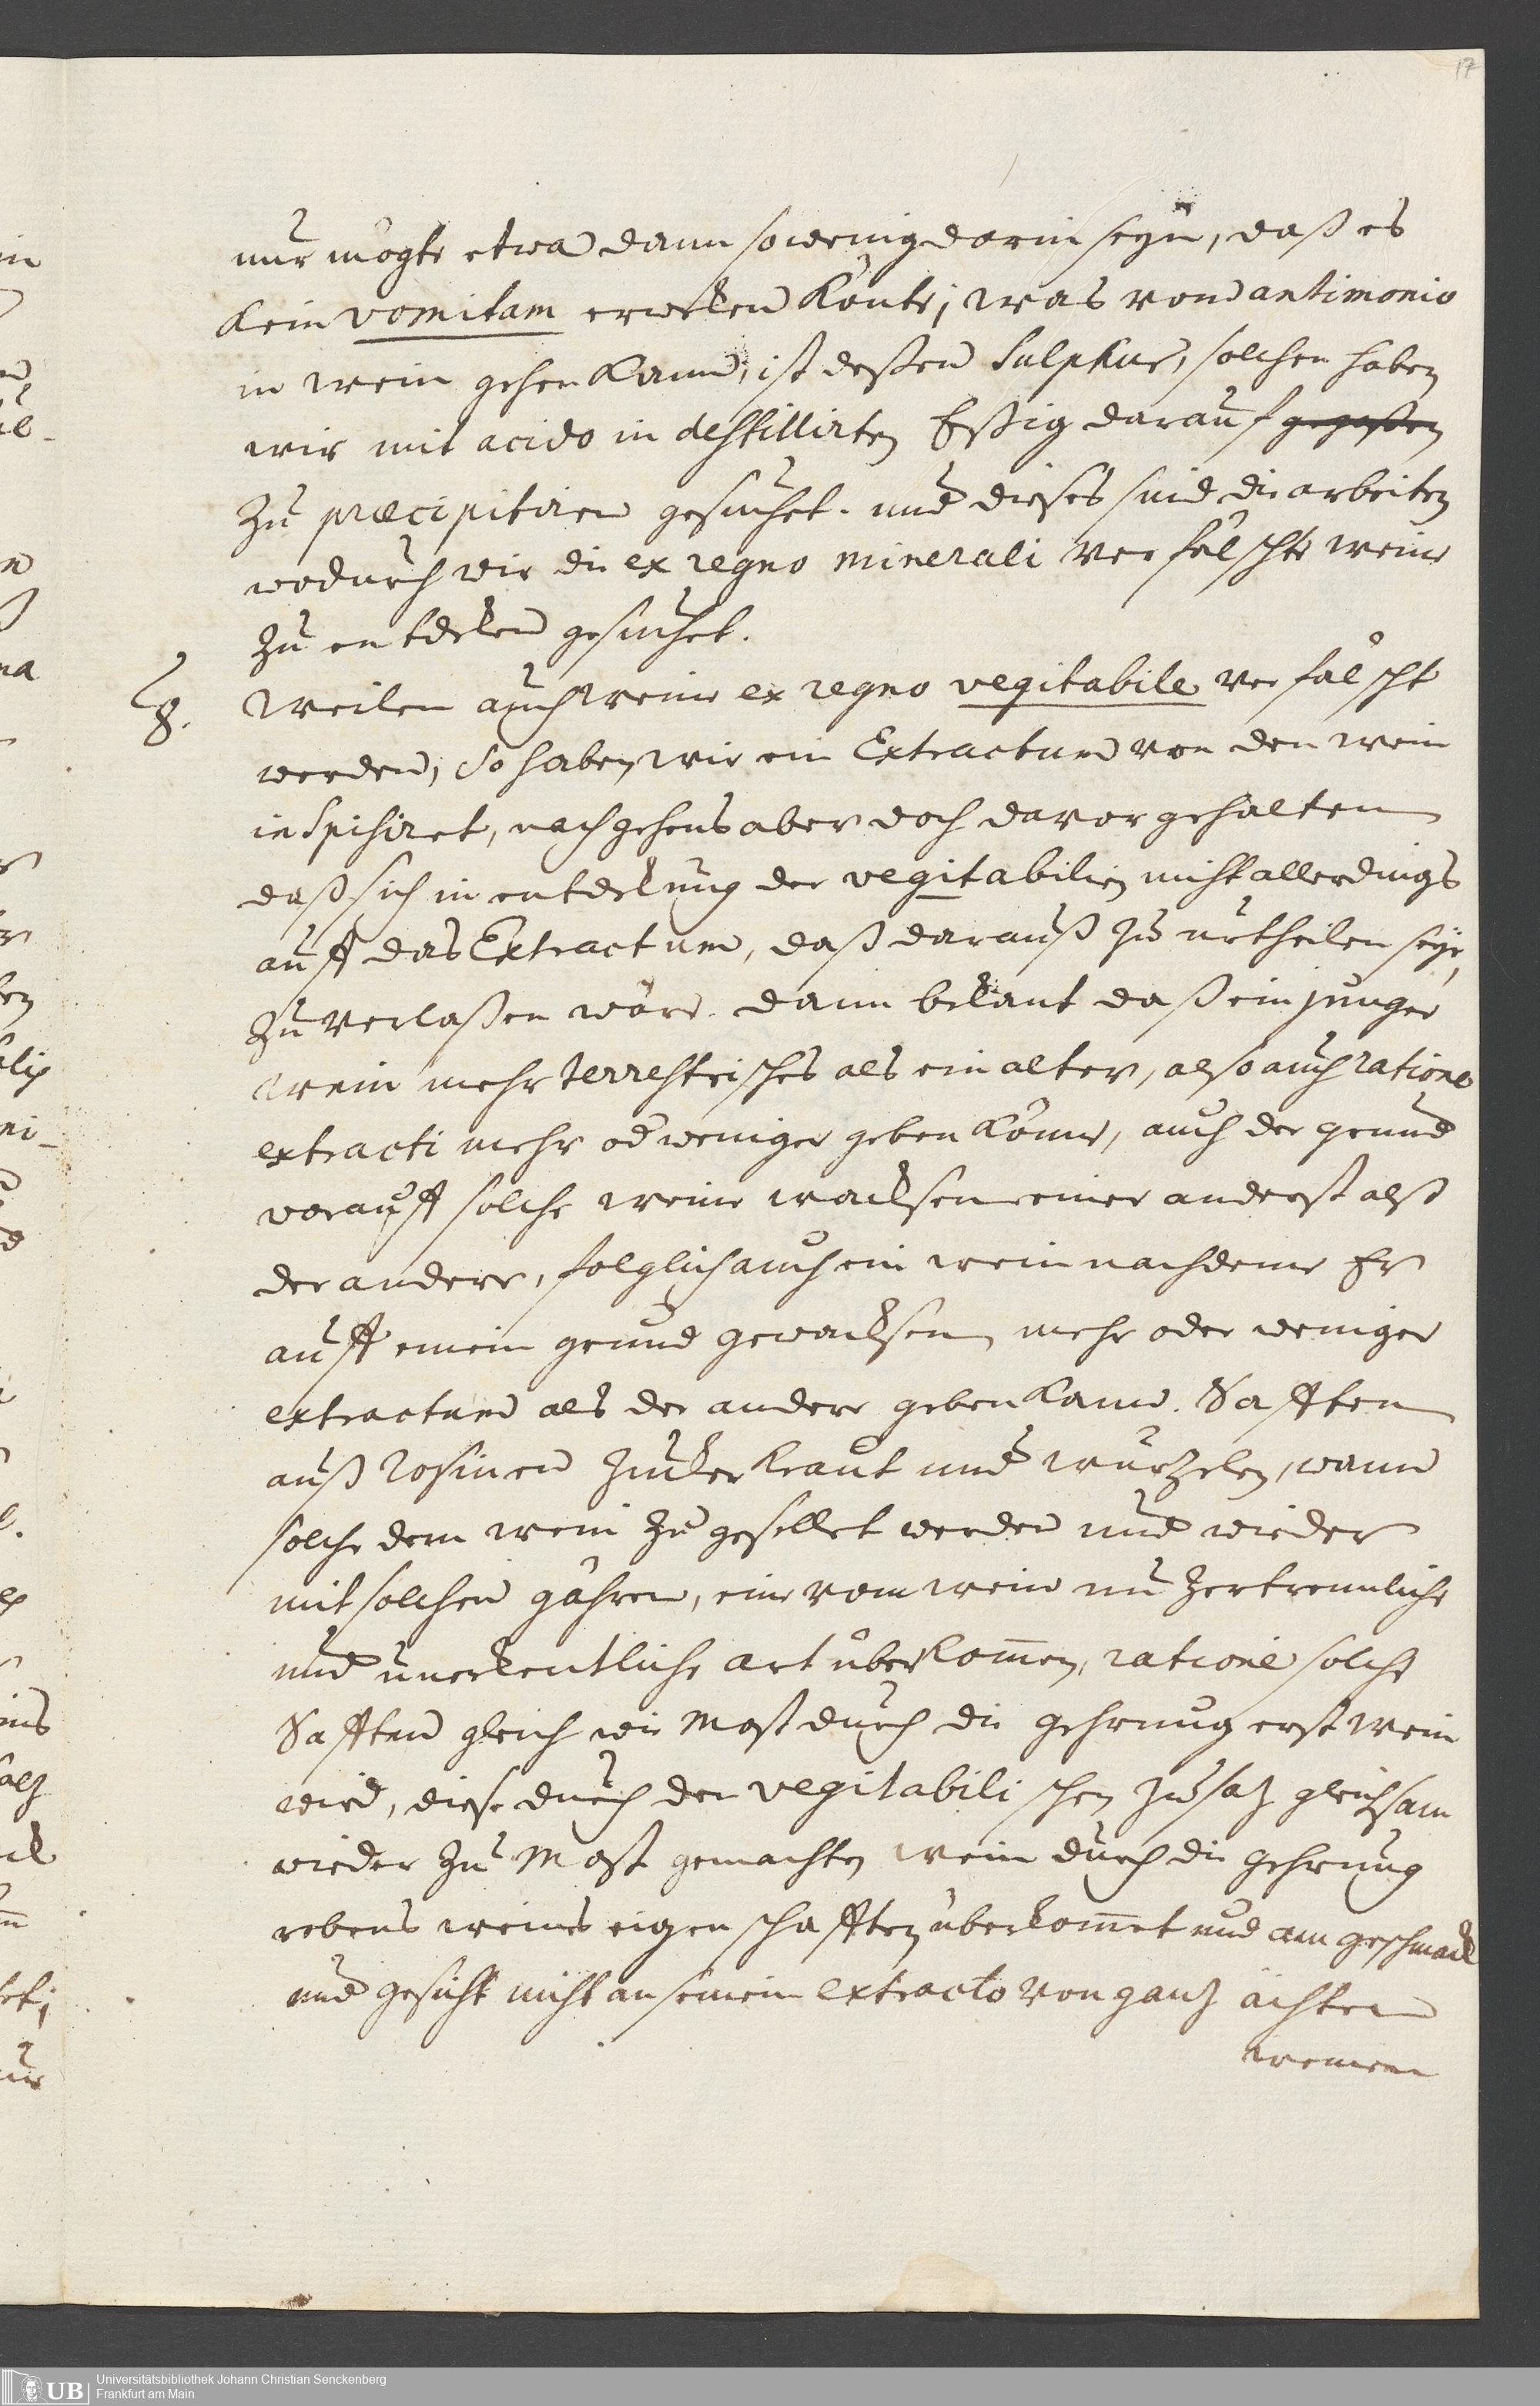 17
nur mögte etwa dann so wenig darin seyn, daß es
kein vomitum erweken könte; was von antimonio
in wein gehen kann, ist deßen Sulphur, solchen haben
wir mit acido in destillirten Eßig darauf gegoßen
zu præcipitiren gesuchet. und dieses sind die arbeiten
wodurch wir die ex regno minerali verfälschte weine
zu entdeken gesuchet.
8. Weilen auch weine ex regno vegitabile verfälscht
werden, So haben wir ein Extractum von den wein
inspisiret, nachgehens aber doch davor gehalten
daß sich in entdekung der vegitabilien nicht allerdings
auff das Extractum, daß darauß zu urtheilen seye,
zu verlaßen wäre. dann bekant daß ein junger
wein mehr terrestrisches als ein alter, also auch ratione
extracti mehr od weniger geben könne, auch der grund
worauff solche weine wachsen einer anderst alß
der andere, folglich auch ein wein nachdeme Er
auff einem grund gewachsen mehr oder weniger
extractum als der andere geben kann. Safften
auß rosinen Zucker kraut und wurzelen, wann
solche dem wein zu gesellet werden und wieder
mit solchen gähren, eine vom wein unzertrennliche
und unerkentliche art überkommen, ratione solche
Safften gleich wie Most durch die gehrung erst wein
wird, diese durch den vegitabilischen zusatz gleichsam
wieder zu Most gemachten wein durch die gehrung
ebens weines eigenschafften überkommet und am geschmack
und gesicht nicht an seinem extracto von ganz ächten
weinen
Universitätsbibliothek Johann Christian Senckenberg
Frankfurt am Main
UB